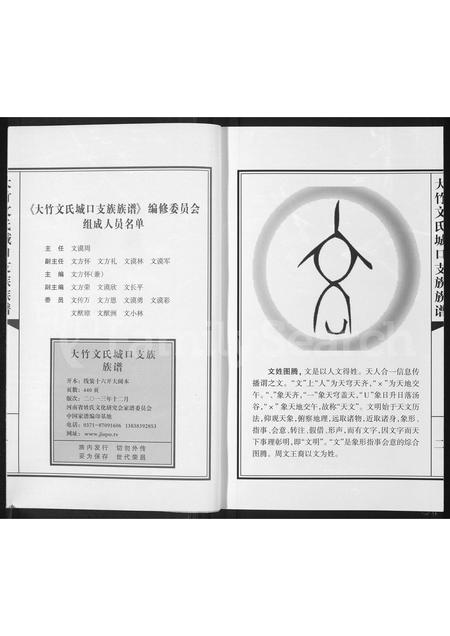 《大竹文氏城口支族族谱》编修委员会
组成人员名单
主 任 文谟周
副主任 文方怀 文方礼 文谟林 文谟军
主 编 文方怀(兼)
副主编 文方荣 文谟欣 文长平
委 员 文传万 文方恩 文谟勇 文谟彩
文猷琼 文猷洲 文小林
大竹文氏城口支族
族谱
开本：线装十六开大阔本
页数：440 页
版次：二〇一三年十二月
河南省姓氏文化研究会家谱委员会
中国家谱编印基地
电话：0371-87091606 13838392853
网址：www.jiapu.tv
族内发行 切勿外传
妥为保存 世代荣昌
大竹文氏城口支族族谱
文姓图腾，文是以人文得姓。天人合一信息传
播谓之文。“文”上“人”为天穹天齐，“×”为天地交
午。“、”象天齐，“一”象天穹盖天，“U”象日升日落汤
谷，“×”象天地交午，故称“天文”。文明始于天文历
法，仰观天象，俯察地理，远取诸物，近取诸身，象形、
指事、会意、转注、假借、形声，而有文字，因文字而天
下事理彰明，即“文明”。“文”是象形指事会意的综合
图腾。周文王裔以文为姓。
二
FamilySearch